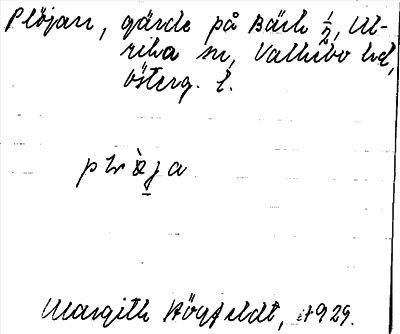 Plöjan, gärde på Bäck 1/2, Ul-
rika sn, Vallebo hd,
Österg. l.
Margith Högfeldt, 1929.